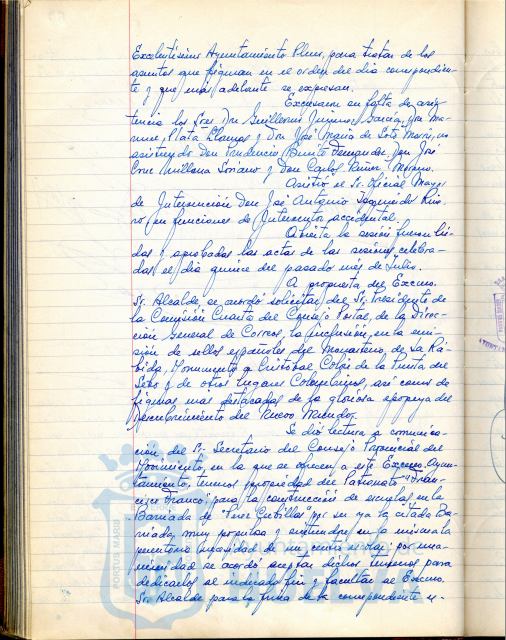 Excelentísimo Ayuntamiento Pleno, para tratar de los
asuntos que figuran en el orden del día correspondien-
te y que más adelante se expresan.
Excusaron su falta de asis-
tencia los Sres Don Guillermo García, Don Ma-
nuel Plata Llamas y Don José María de Soto Morris, no
asistiendo Don Prudencio Benito Fernández, Don José
Cruz Orellana Soriano y Don Carlos Núñez Moreno.
Asistió el Sr. Oficial Mayor
de Intervención Don José Antonio
en funciones de Interventor accidental.
Abierta la sesión fueron leí-
das y aprobadas las actas de las sesiones celebra-
das el día quince del pasado mes de Julio.
A propuesta del Excmo.
Sr. Alcalde, se acordó solicitar del Sr. Presidente de
la Comisión Cuarta del Consejo Postal, de la Direc-
ción General de Correos, la inclusión en la emi-
sión de sellos españoles del Monasterio de La Rá-
bida, Monumento a Cristóbal Colón de la Punta del
Sebo y de otros lugares Colombinos, así como de
figuras mas destacadas de la gloriosa epopeya del
Descubrimiento del Nuevo Mundo.
Se dió lectura a comunica-
ción del Sr. Secretario del Consejo Provincial del
Movimiento, en la que se ofrecen a este Excmo. Ayun-
tamiento, terrenos propiedad del Patronato "Fran-
cisco Franco", para la construcción de escuelas en la
Barriada de "Perez Cubillas" por ser ya la citada Ba-
rriada, muy populosa y sintiendose en la misma la
perentoria necesidad de un centro escolar, por una-
nimidad se acordó aceptar dichos terrenos para
dedicarlos al indicado fin y facultar al Excmo.
Sr. Alcalde para la firma de la correspondiente
PORTUS MARIS